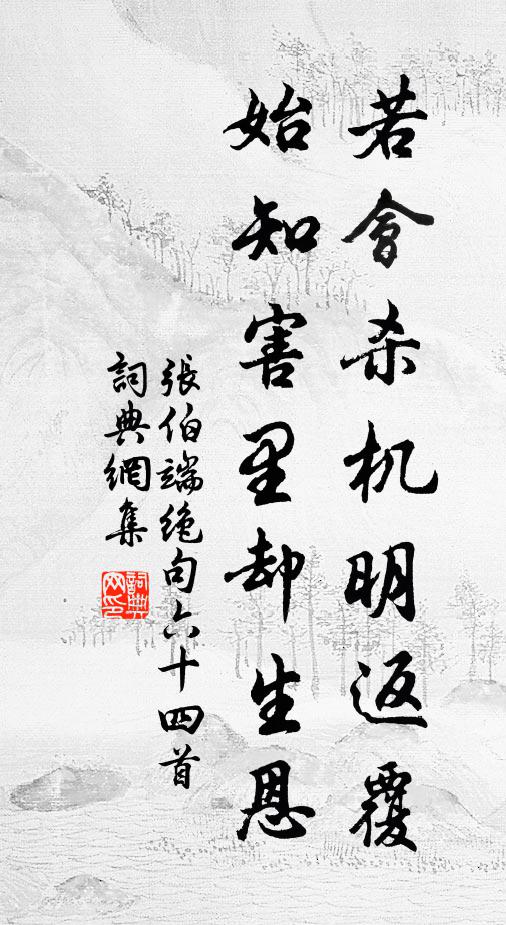 若會杀机明返覆
始知害里却生恩
張伯端绝句六十四首
詞典網集
詞典網印